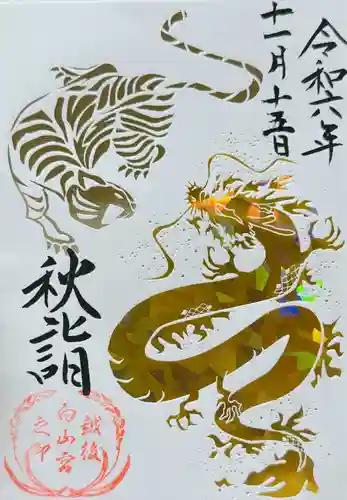 令和六年
十一月十五日
秋詣
越後
白山宮
之印